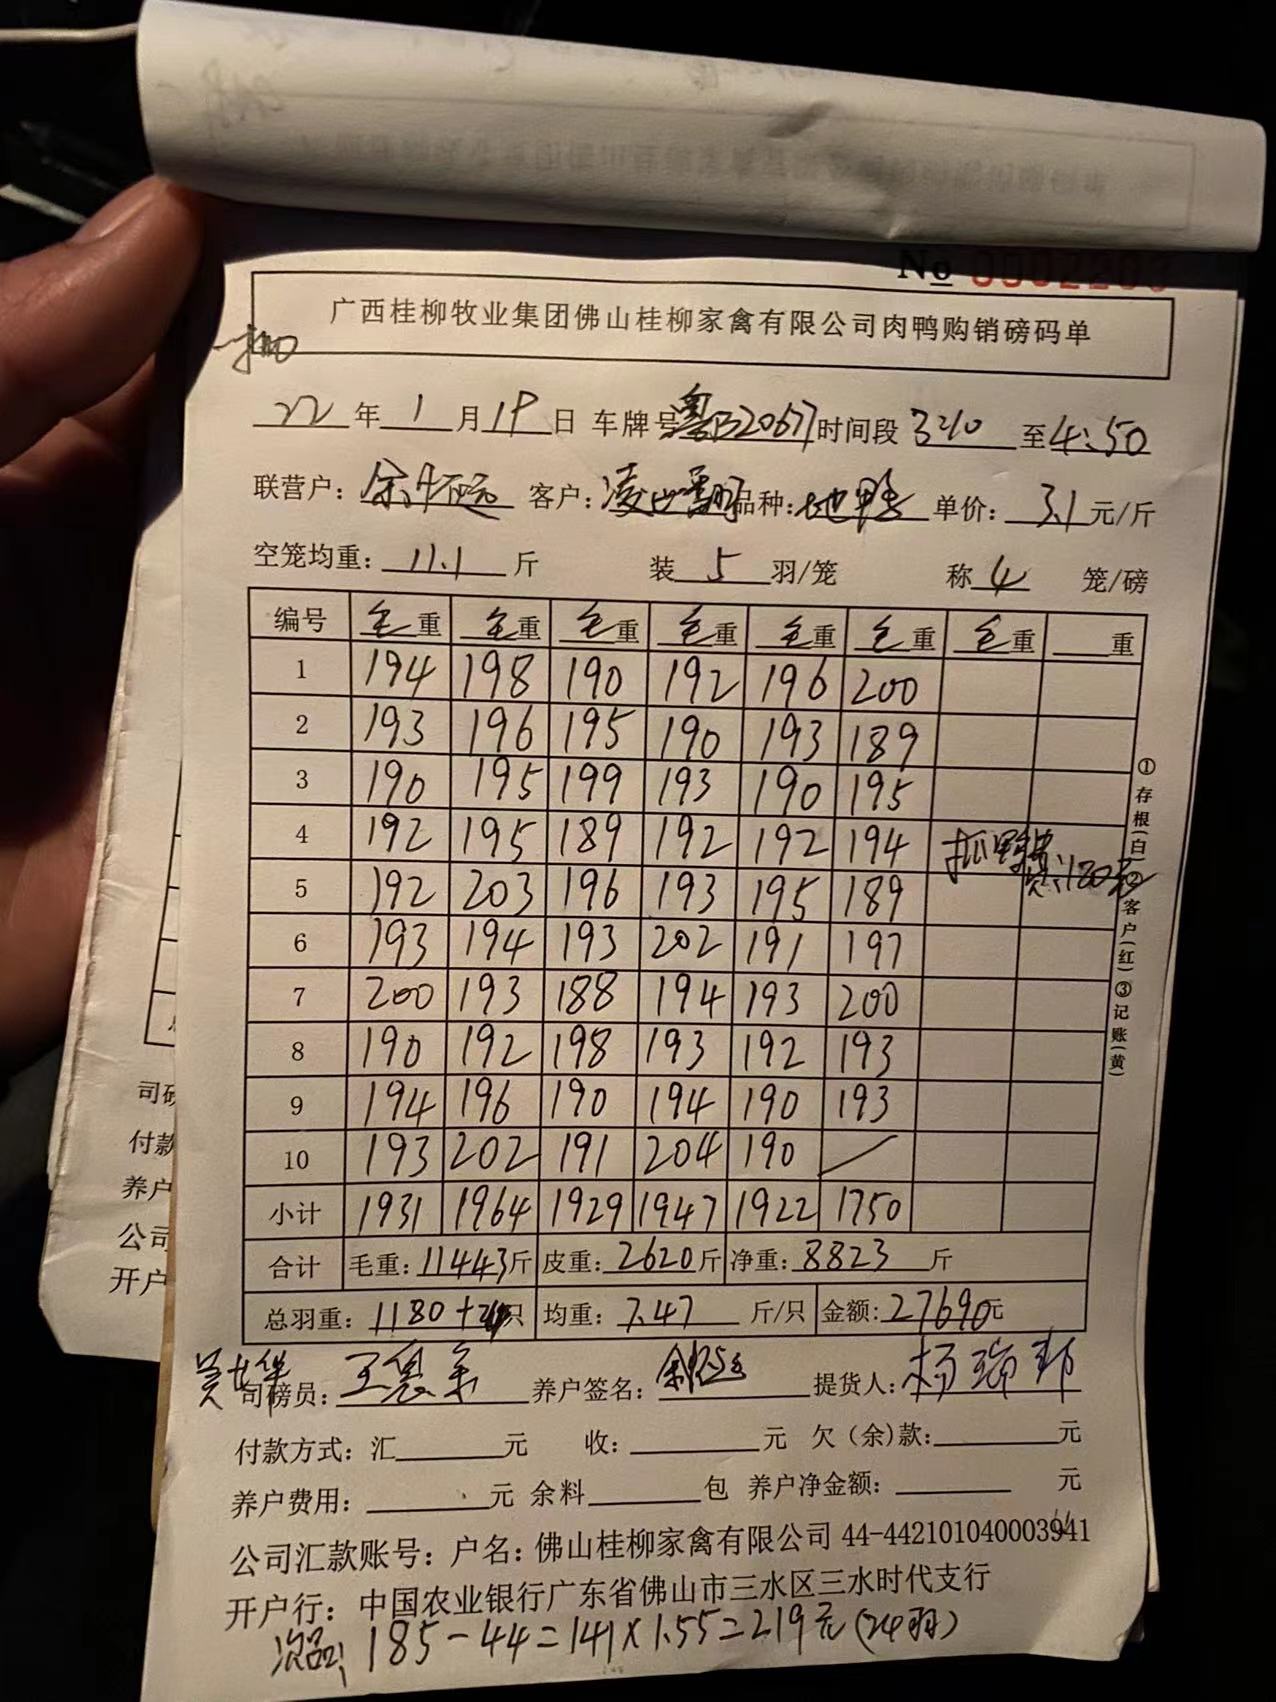 No 0002203
广西桂柳牧业集团佛山桂柳家禽有限公司肉鸭购销磅码单
22年1月19日 车牌号 粤B20677 时间段 3:10 至 4:50
联营户： 余怀远 客户： 品种： 地鸭 单价： 3.1 元/斤
空笼均重： 11.1 斤 装 5 羽/笼 称 4 笼/磅
编号 毛重 毛重 毛重 毛重 毛重 毛重 毛重 重
1 194 198 190 192 196 200
2 193 196 195 190 193 189
3 190 195 199 193 190 195
4 192 195 189 192 192 194 抓鸭费
5 192 203 196 193 195 189 总:1180羽
6 193 194 193 202 191 197
7 200 193 188 194 193 200
8 190 192 198 193 192 193
9 194 196 190 194 190 193
10 193 202 191 204 190 /
小计 1931 1964 1929 1947 1922 1750
合计 毛重：11443斤 皮重：2620斤 净重：8823斤
总羽重： 1180+24只 均重： 7.47 斤/只 金额：27690元
司磅员： 养户签名： 余怀远 提货人：
付款方式：汇 元 收： 元 欠（余）款： 元
养户费用： 元 余料 包 养户净金额： 元
公司汇款账号：户名：佛山桂柳家禽有限公司 44-442101040003941
开户行：中国农业银行广东省佛山市三水区三水时代支行
次品: 185-44=141×1.55=219元(24羽)
①存根(白)②客户(红)③记账(黄)
司磅
付款
养户
公司
开户